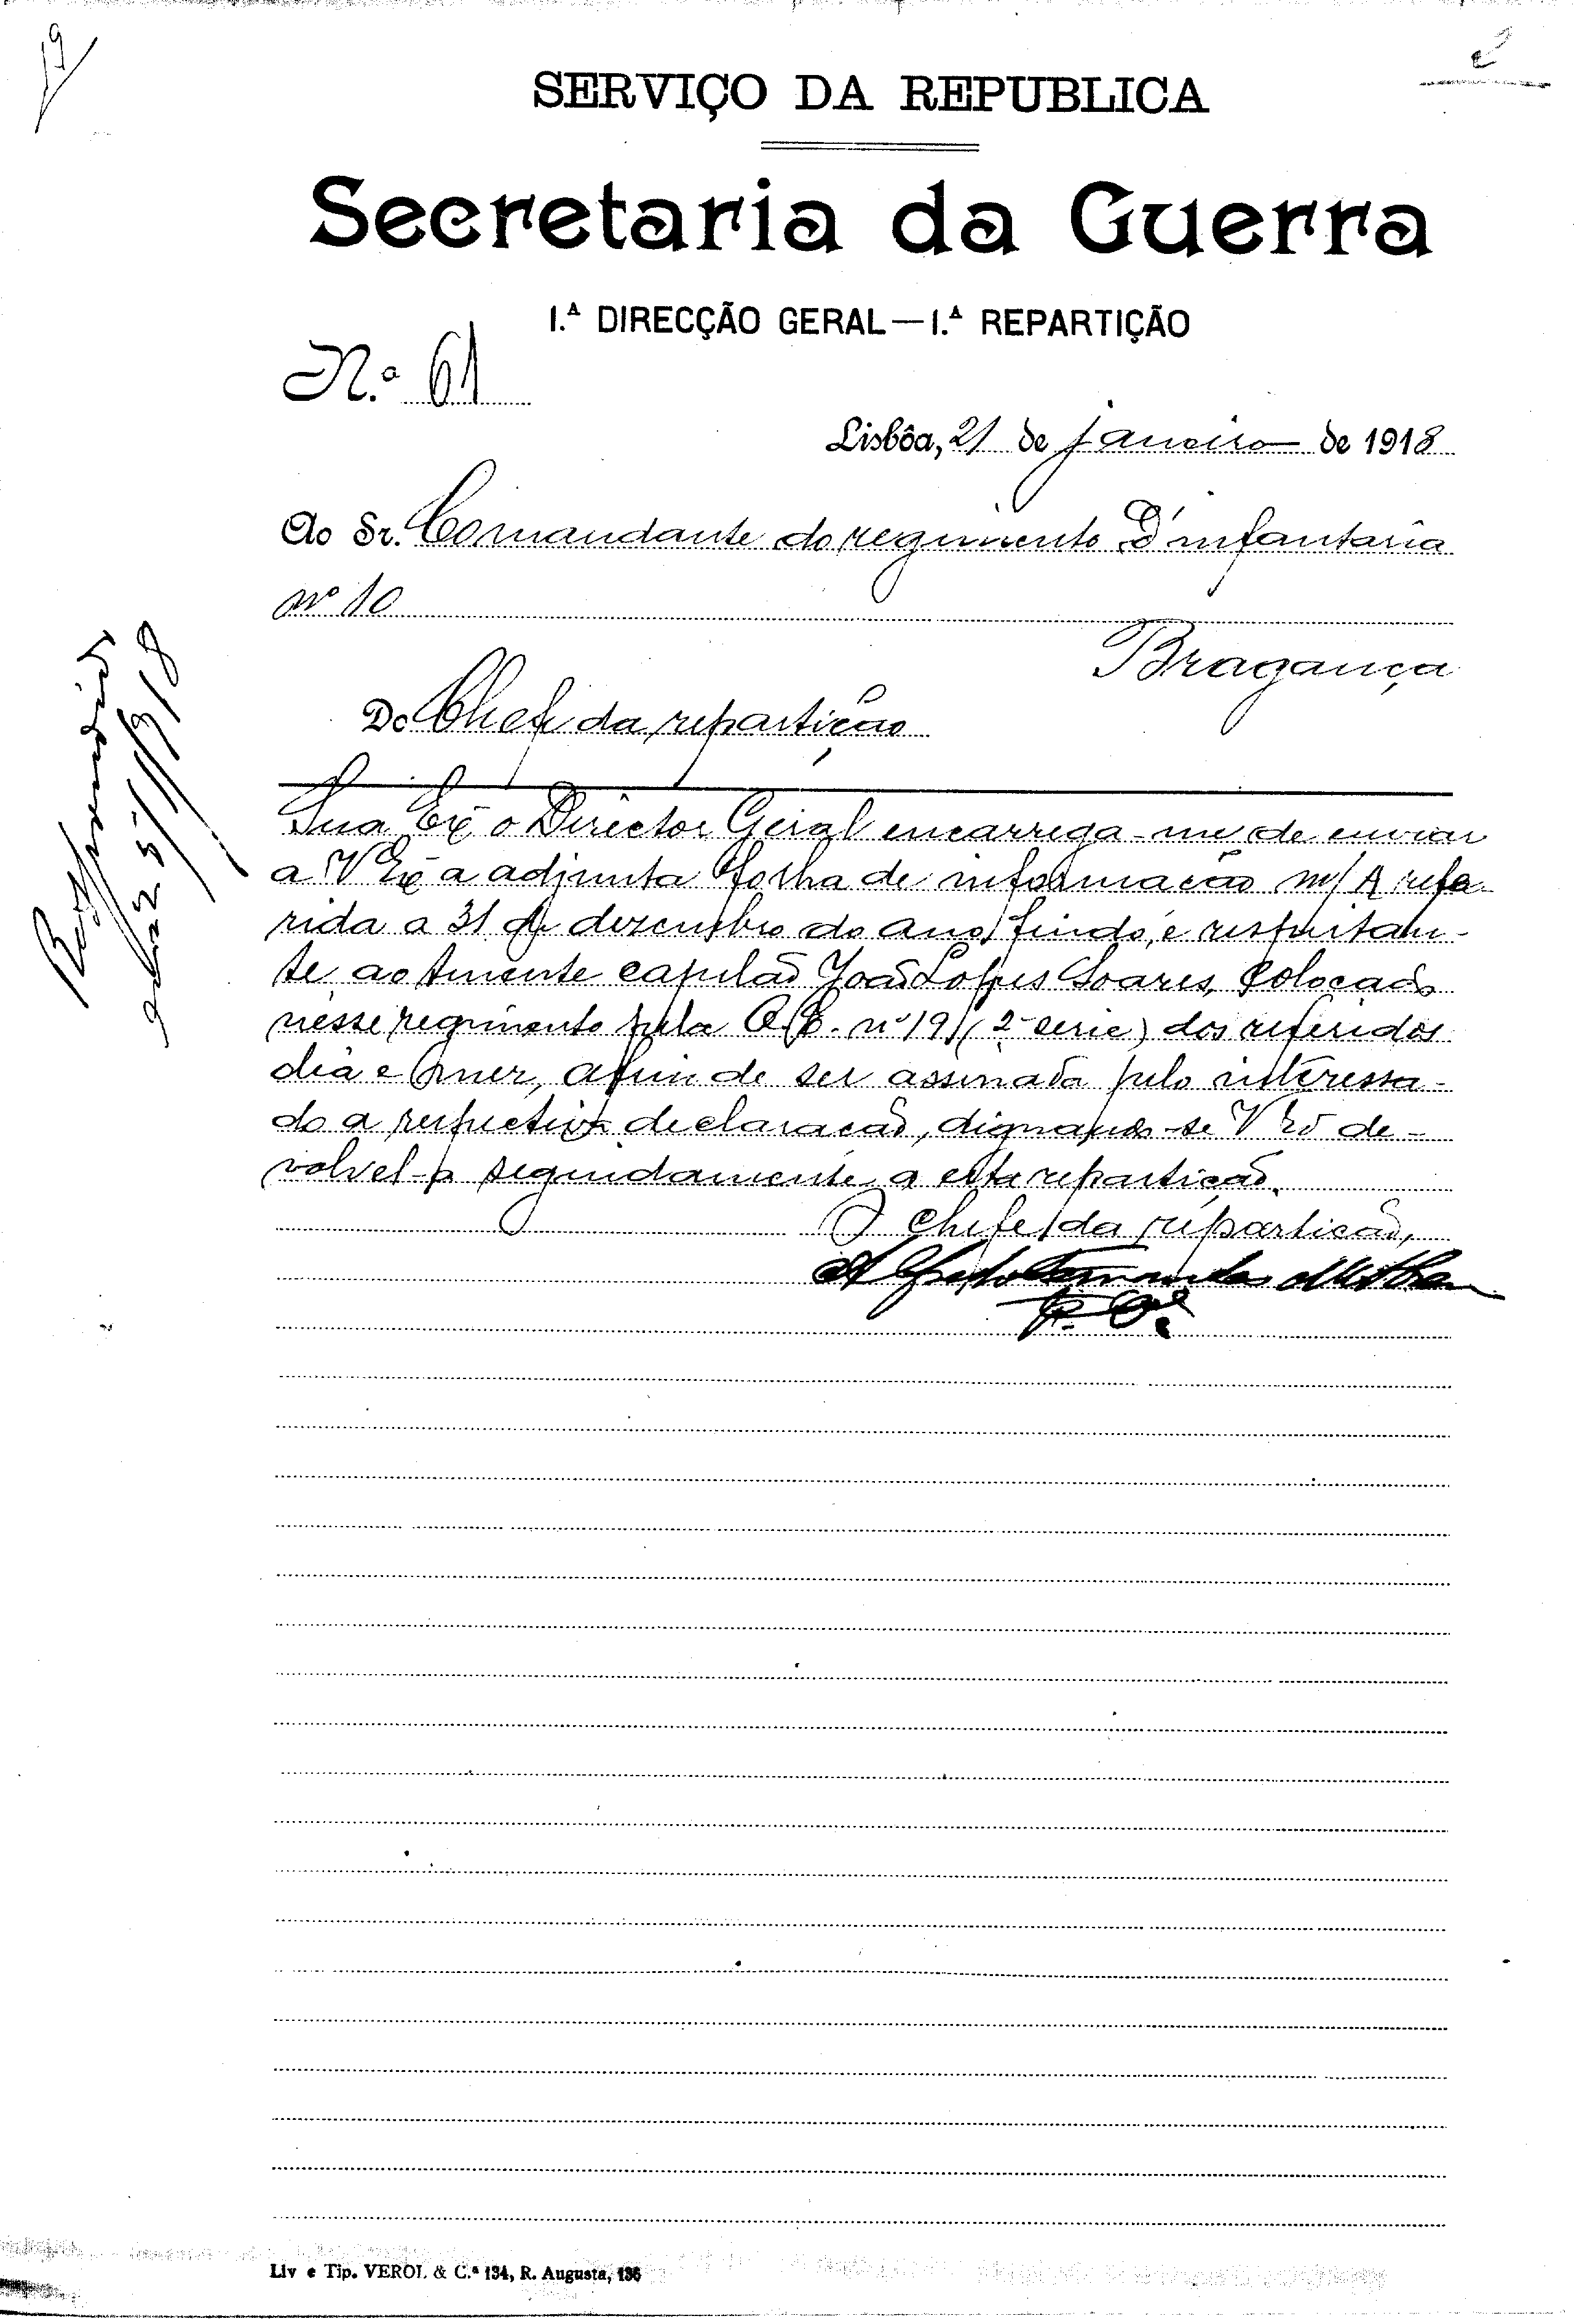 SERVIÇO DA REPUBLICA
Secretaria da Guerra
1.ª DIRECÇÃO GERAL — 1.ª REPARTIÇÃO
N.º 61
Lisbôa, 21 de janeiro de 1918
Ao Sr. Comandante do regimento d'infantaria
nº 10
Bragança
Do Chefe da repartição
Sua Exª o Director Geral encarrega-me de enviar
a V Exª a adjunta folha de informação m/A refe-
rida a 31 de dezembro do ano findo, e respeitan-
te ao tenente capelão João Lopes Soares, colocado
nesse regimento pela O.E. nº 19 (2ª serie) dos referidos
dia e mez, afim de ser assinada pelo interessa-
do a respectiva declaração, dignando-se V Exª de-
volvel-a seguidamente a esta repartição.
O chefe da repartição,
Alfredo
Respondido
em 25/1/918
Liv e Tip. VEROL & C.ª 134, R. Augusta, 136